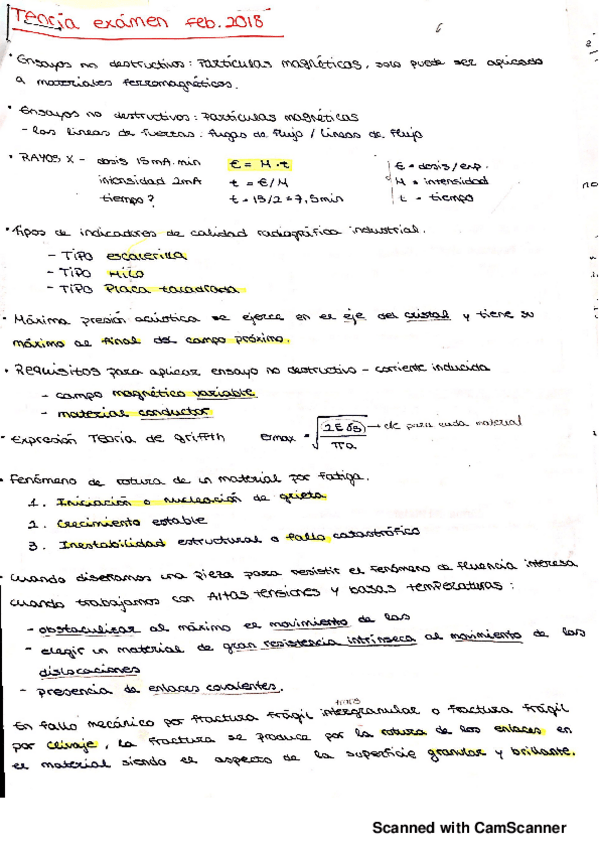 Teoría exámen Feb. 2018
6
• Ensayos no destructivos: Partículas magnéticas, solo puede ser aplicado
a materiales ferromagnéticos.
• Ensayos no destructivos: Partículas magnéticas
- Las líneas de fuerzas: fugas de flujo / líneas de flujo
• RAYOS X - dosis 15 mA.min € = M · t € = dosis/exp.
intensidad 2mA t = €/M M = intensidad
tiempo? t = 15/2 = 7,5min t = tiempo
no
• Tipos de indicadores de calidad radiográfica industrial.
- TIPO escalerilla
- TIPO Hilo
- TIPO Placa taladrada
• Máxima presión acústica se ejerce en el eje del cristal y tiene su
máximo al final del campo próximo.
• Requisitos para aplicar ensayo no destructivo - corriente inducida
- campo magnético variable
- material conductor
- Expresión Teoría de griffth σmax = √(2Eγs / πa) → de para cada material
- Fenómeno de rotura de un material por fatiga.
1. Iniciación o nucleación de grieta
2. Crecimiento estable
3. Inestabilidad estructural o fallo catastrófico
- Cuando diseñamos una pieza para resistir el fenómeno de fluencia interesa
cuando trabajamos con Altas tensiones y bajas temperaturas:
- obstaculizar al máximo el movimiento de las
- elegir un material de gran resistencia intrínseca al movimiento de las
dislocaciones
- presencia de enlaces covalentes.
En fallo mecánico por fractura frágil intergranular o fractura frágil
por clivaje, la fractura se produce por la rotura de los enlaces en
el material siendo el aspecto de la superficie granular y brillante.
Scanned with CamScanner